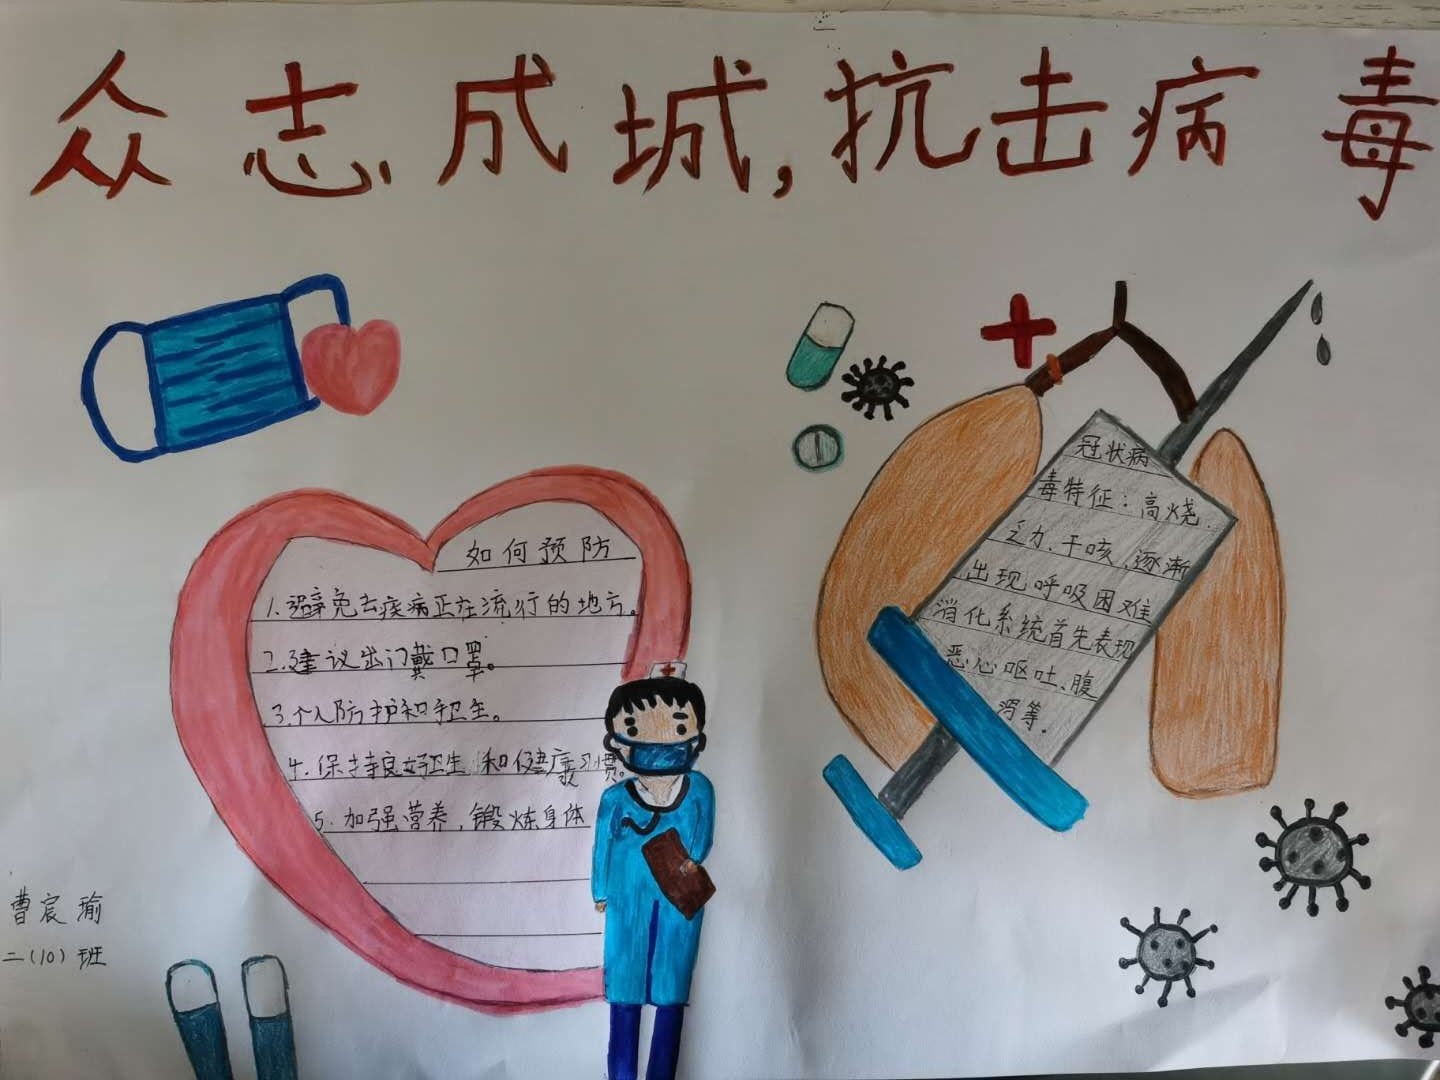 众志成城,抗击病毒
如何预防
1.避免去疾病正在流行的地方。
2.建议出门戴口罩。
3.个人防护和手卫生。
4.保持良好卫生和健康习惯。
5.加强营养,锻炼身体
冠状病
毒特征:高烧.
乏力、干咳、逐渐
出现呼吸困难
消化系统首先表现
恶心呕吐、腹
泻等.
曹宸瑜
二(10)班